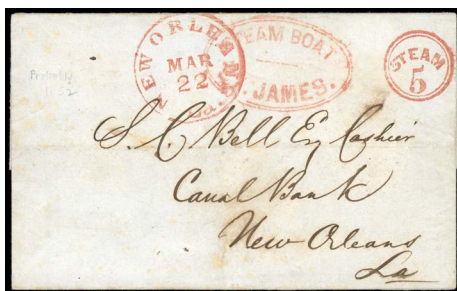 NEW ORLEANS La.
MAR
22
STEAM BOAT
JAMES.
STEAM
5
Probably
S. C. Bell Esq Cashier
Canal Bank
New Orleans
La